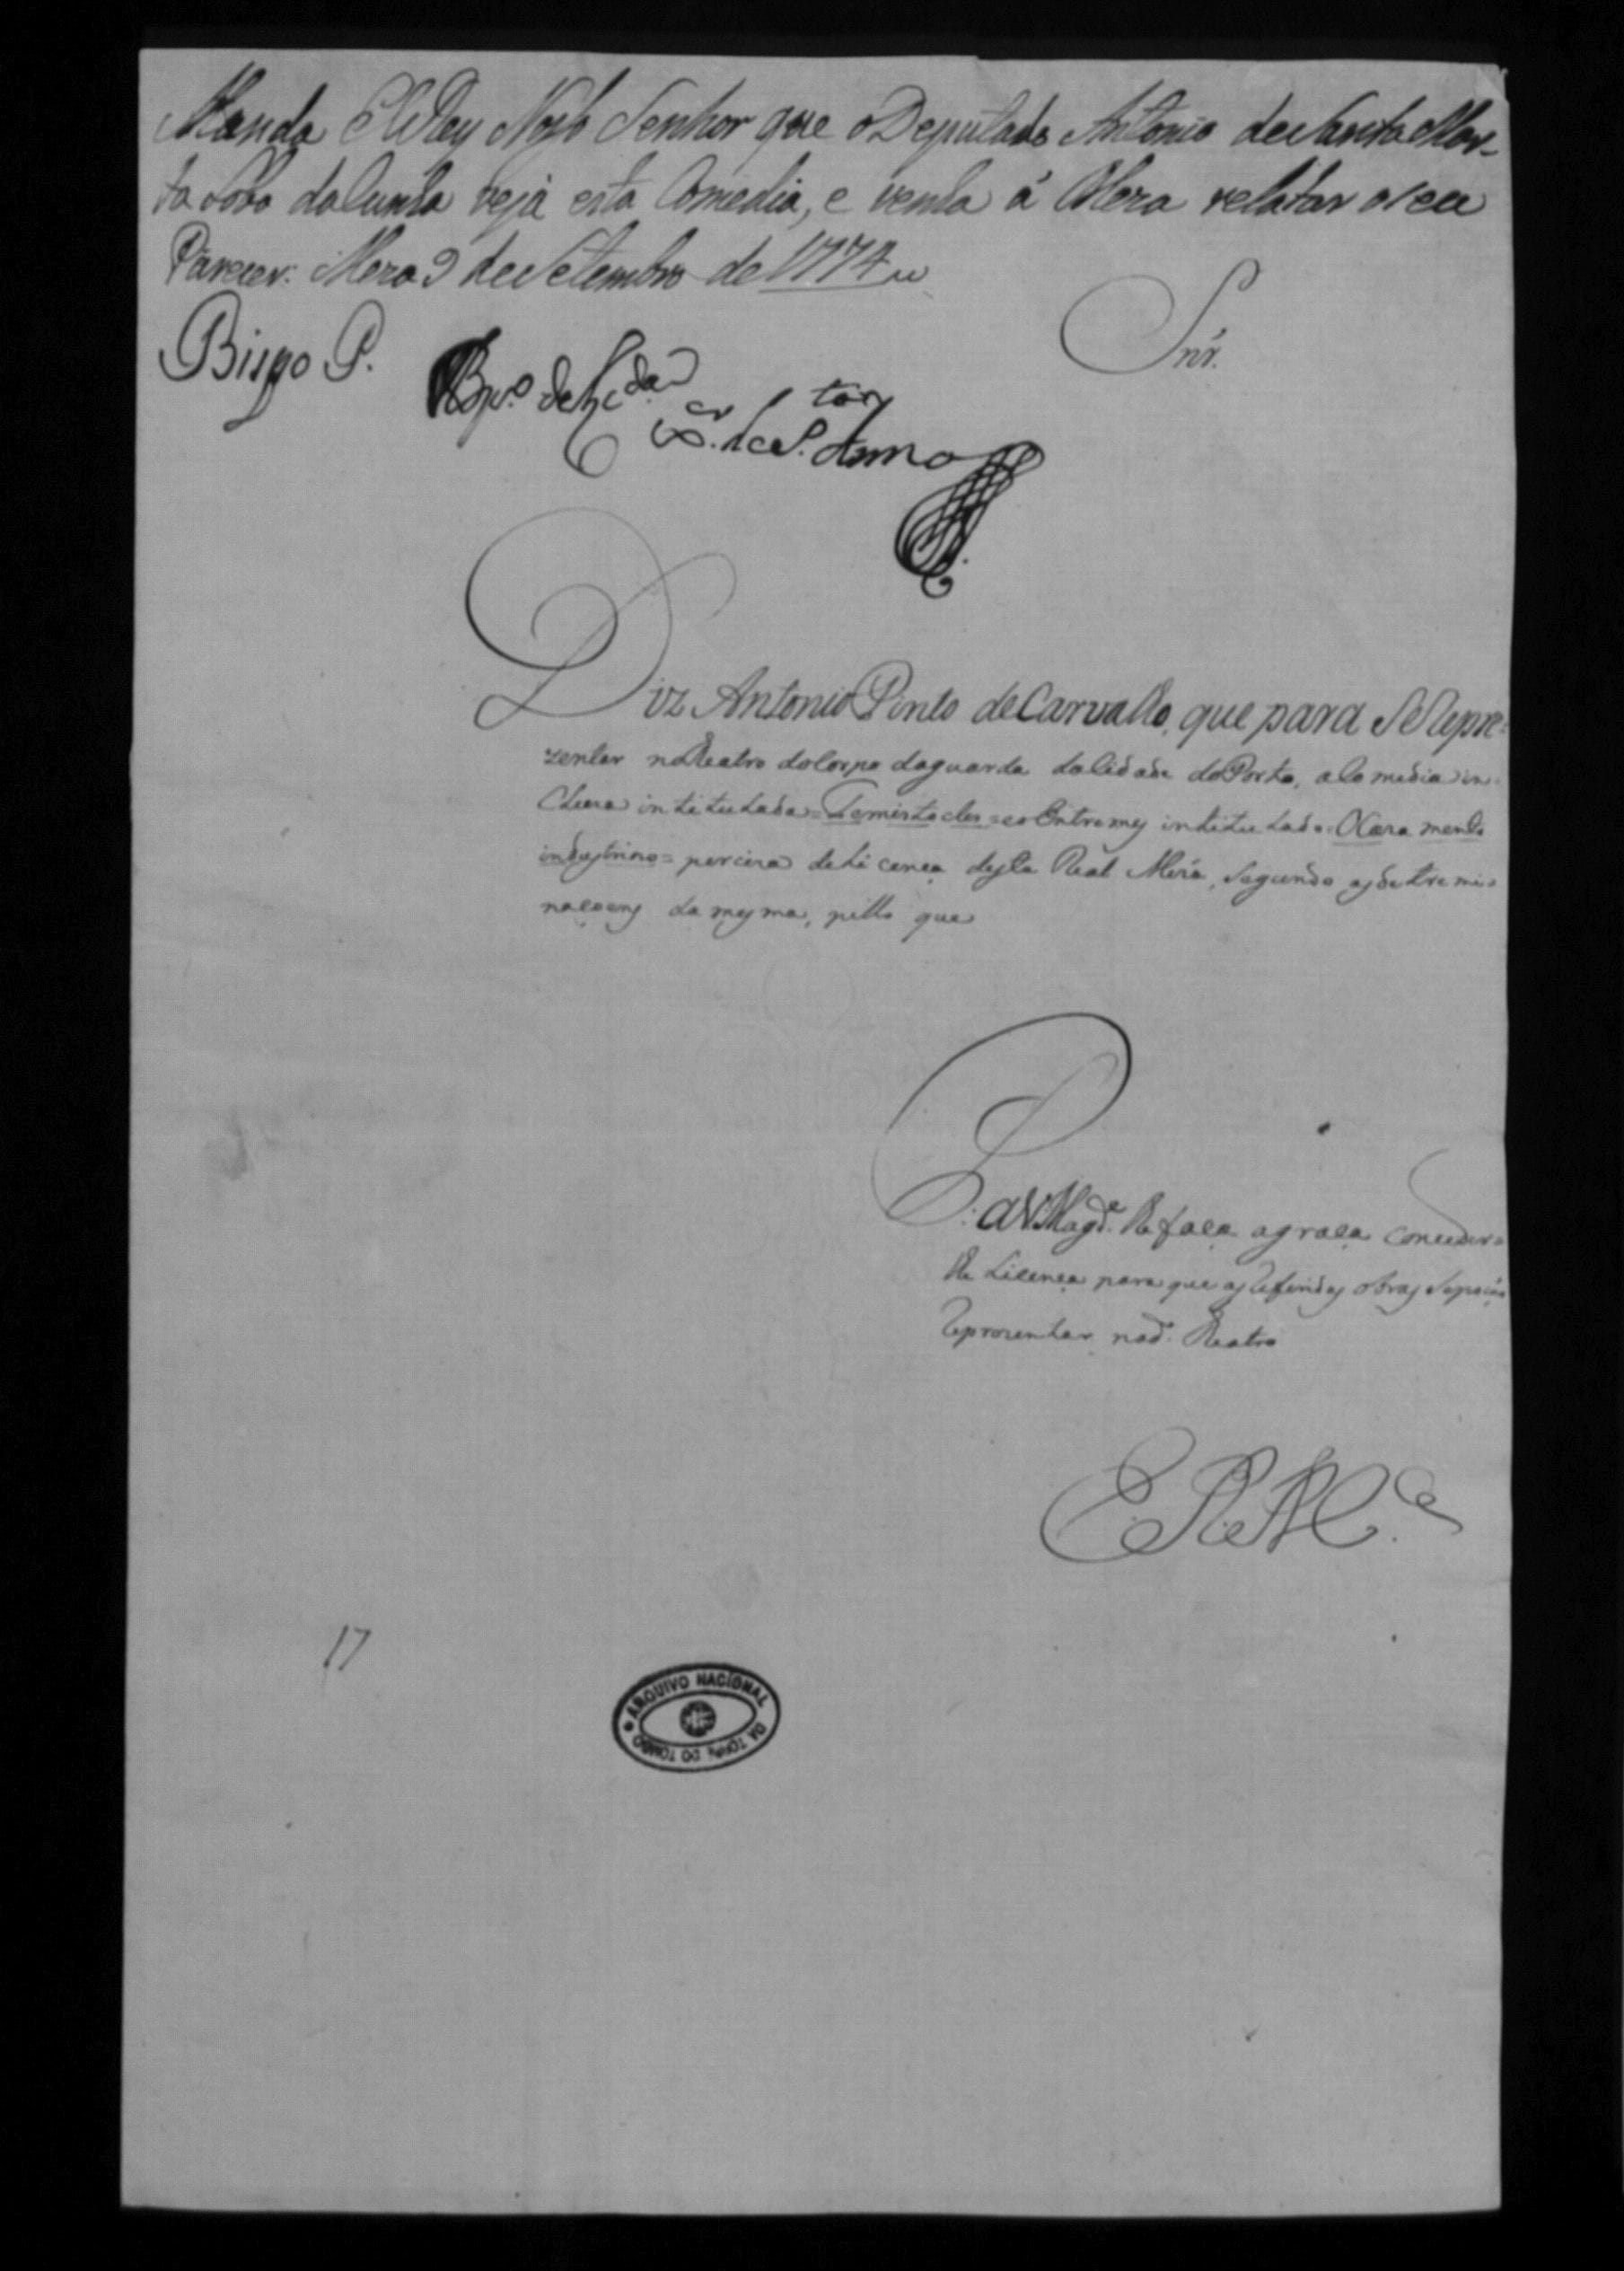 Manda ElRey Nosso Senhor que o Deputado Antonio de Santa Mar-
ta Lobo da Cunha veja esta Comedia, e venha á Meza relatar o seu
Parecer. Meza 9 de Setembro de 1774
Snr.
Bispo P.
Diz Antonio Pinto de Carvalho, que para Se Repre=
zentar no theatro do Corpo daguarda da Cidade do Porto, a Comedia in
Cluza intitulada = Temistocles = e o Entremes intitulado = O Cazamento
industriozo = perciza de Licença desta Real Meza, Segundo as detremi=
nacoens da mesma, pello que
P. a V. Magde. lhe faça a graça conceder=
lhe Licença para que as Referidas obras Se possão
Reprezentar no d. theatro
E. R. M.ce
17
ARQUIVO NACIONAL
DA TORRE DO TOMBO